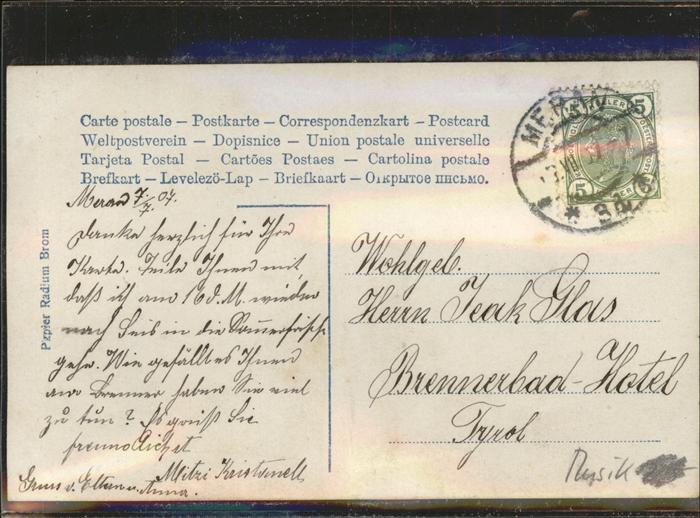 Carte postale – Postkarte – Correspondenzkart – Postcard
Weltpostverein – Dopisnice – Union postale universelle
Tarjeta Postal – Cartões Postaes – Cartolina postale
Brefkart – Levelezö-Lap – Briefkaart – Открытое письмо.
Meran 7/7 07.
Danke herzlich für Ihre
Karte. Teile Ihnen mit,
daß ich am 16 d. M. wieder
nach Seis in die Sommerfrische
gehe. Wie gefällt es Ihnen
am Brenner haben Sie viel
zu tun? Es grüßt Sie
freundlichst
Mitzi Kristanell
Gruss v. Eltern u. Anna.
Papier Radium Brom
MERAN
5
5
Wohlgeb.
Herrn Jeak Glas
Brennerbad-Hotel
Tyrol
Musik